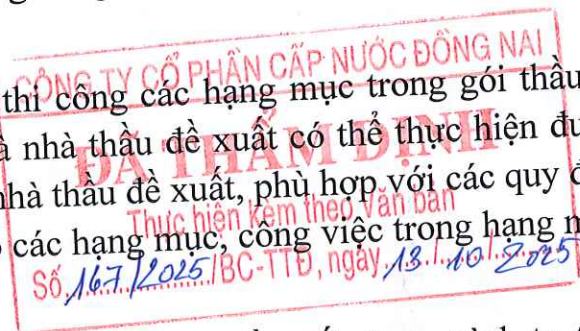 CÔNG TY CỔ PHẦN CẤP NƯỚC ĐỒNG NAI
thi công các hạng mục trong gói thầu
nhà thầu đề xuất có thể thực hiện
ĐÃ THẨM ĐỊNH
nhà thầu đề xuất, phù hợp với các quy
Thực hiện kèm theo văn bản
các hạng mục, công việc trong hạng
Số 167/2025/BC-TTĐ, ngày 13/10/2025